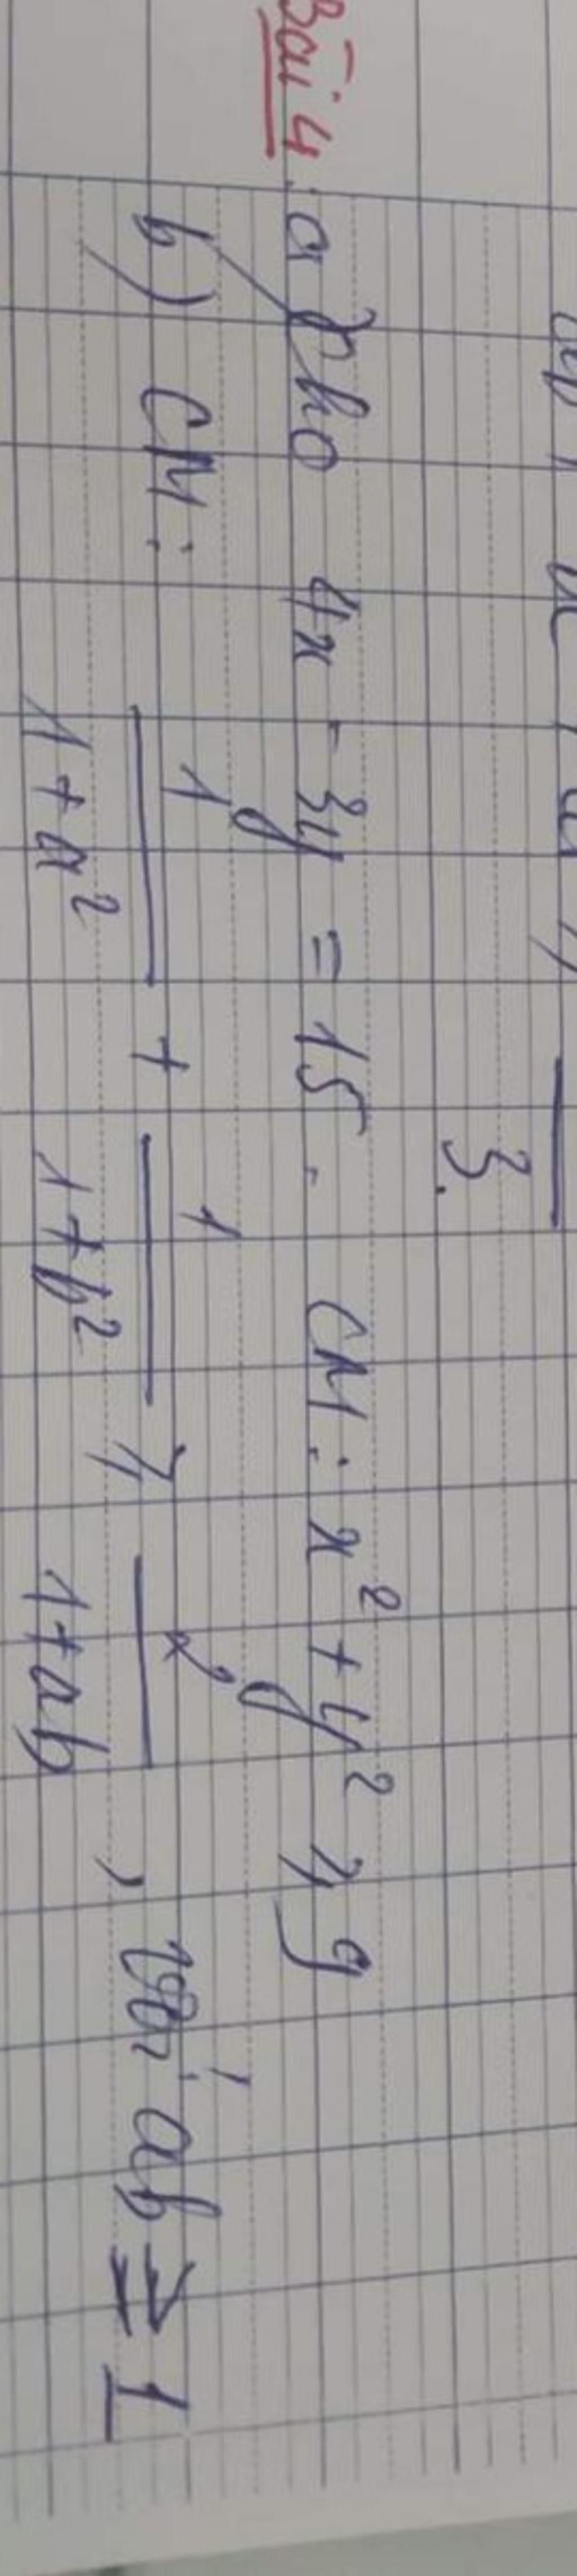 3.
Bài 4: a) Cho 4x - 3y = 15. CM: x² + y² ≥ 9
b) CM: 1/(1+a²) + 1/(1+b²) ≥ 2/(1+ab), với ab ≥ 1